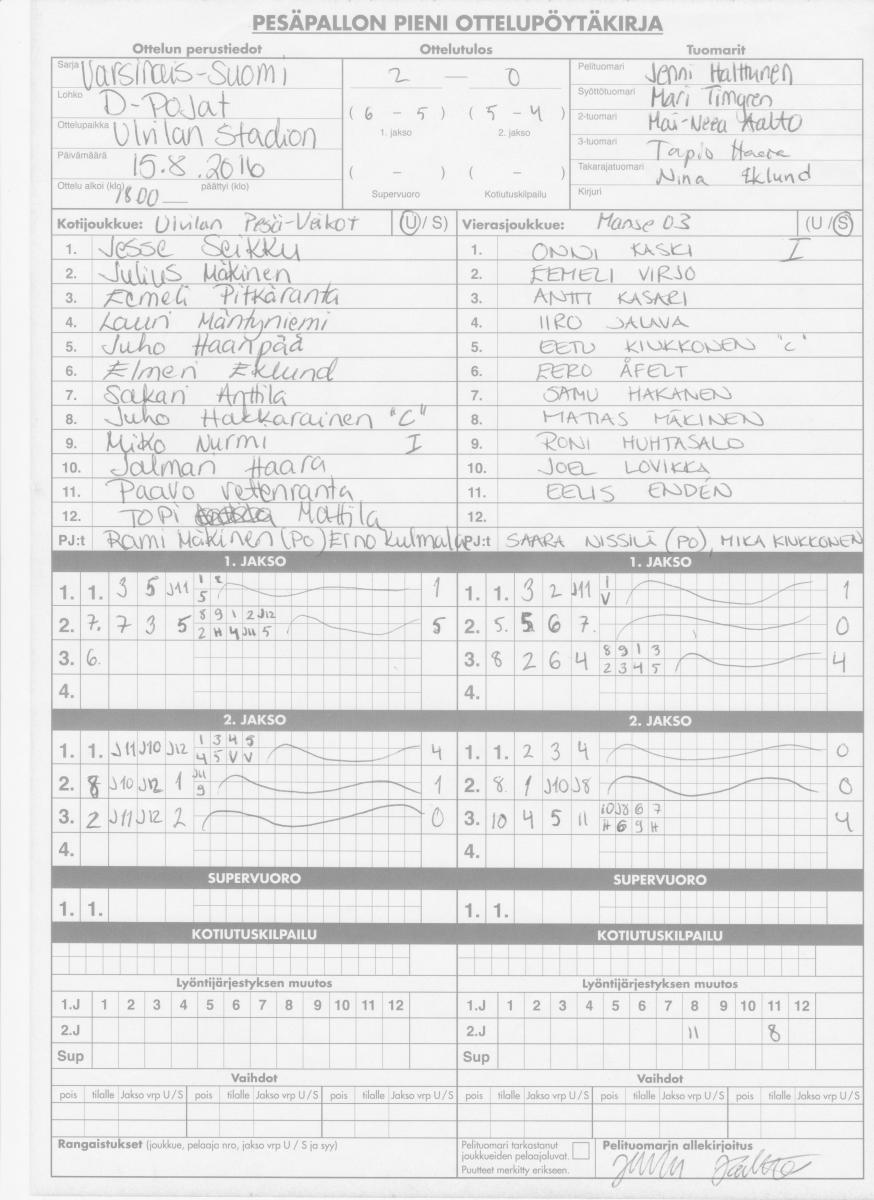 PESÄPALLON PIENI OTTELUPÖYTÄKIRJA
Ottelun perustiedot Ottelutulos Tuomarit
Sarja Varsinais-Suomi 2 — 0 Pelituomari Jenni Halttunen
Lohko D-Pojat (6 - 5) (5 - 4) Syöttötuomari Mari Timgren
Ottelupaikka Ulvilan Stadion 1. jakso 2. jakso 2-tuomari Mai-Neea Aalto
Päivämäärä 15.8.2016 ( - ) ( - ) 3-tuomari Tapio Haara
Ottelu alkoi (klo) 18 00 päättyi (klo) Supervuoro Kotiutuskilpailu Takarajatuomari Nina Eklund
Kirjuri
Kotijoukkue: Ulvilan Pesä-Veikot (U/S) Vierasjoukkue: Manse 03 (U/S)
1. Jesse Seikku 1. ONNI KASKI I
2. Julius Mäkinen 2. EEMELI VIRJO
3. Eemeli Pitkäranta 3. ANTTI KASARI
4. Lauri Mäntyniemi 4. IIRO JALAVA
5. Juho Haanpää 5. EETU KIUKKONEN "C"
6. Elmeri Eklund 6. EERO ÅFELT
7. Sakari Anttila 7. SAMU HAKANEN
8. Juho Hakkarainen "C" 8. MATIAS MÄKINEN
9. Miko Nurmi I 9. RONI HUHTASALO
10. Jalmari Haara 10. JOEL LOVIKKA
11. Paavo Vetenranta 11. EELIS ENDÉN
12. TOPI Mattila 12.
PJ:t Rami Mäkinen (PO) Erno Kulmala PJ:t SAARA NISSILÄ (PO), MIKA KIUKKONEN
1. JAKSO 1. JAKSO
1. 1. 3 5 J11 1 2 1 1. 1. 3 2 J11 1 1
5 V
2. 7. 7 3 5 8 9 1 2 J12 5 2. 5. 5 6 7. 0
2 H 4 J11 5
3. 6. 3. 8 2 6 4 8 9 1 3 4
2 3 4 5
4. 4.
2. JAKSO 2. JAKSO
1. 1. J11 J10 J12 1 3 4 5 4 1. 1. 2 3 4 0
4 5 V V
2. 8 J10 J12 1 J11 1 2. 8. 1 J10 J8 0
9
3. 2 J11 J12 2 0 3. 10 4 5 11 10 J8 6 7 4
H 6 9 H
4. 4.
SUPERVUORO SUPERVUORO
1. 1. 1. 1.
KOTIUTUSKILPAILU KOTIUTUSKILPAILU
Lyöntijärjestyksen muutos Lyöntijärjestyksen muutos
1.J 1 2 3 4 5 6 7 8 9 10 11 12 1.J 1 2 3 4 5 6 7 8 9 10 11 12
2.J 2.J 11 8
Sup Sup
Vaihdot Vaihdot
pois tilalle Jakso vrp U/S pois tilalle Jakso vrp U/S pois tilalle Jakso vrp U/S pois tilalle Jakso vrp U/S pois tilalle Jakso vrp U/S pois tilalle Jakso vrp U/S
Rangaistukset (joukkue, pelaaja nro, jakso vrp U / S ja syy) Pelituomari tarkastanut Pelituomarin allekirjoitus
joukkueiden pelaajaluvat.
Puutteet merkitty erikseen.